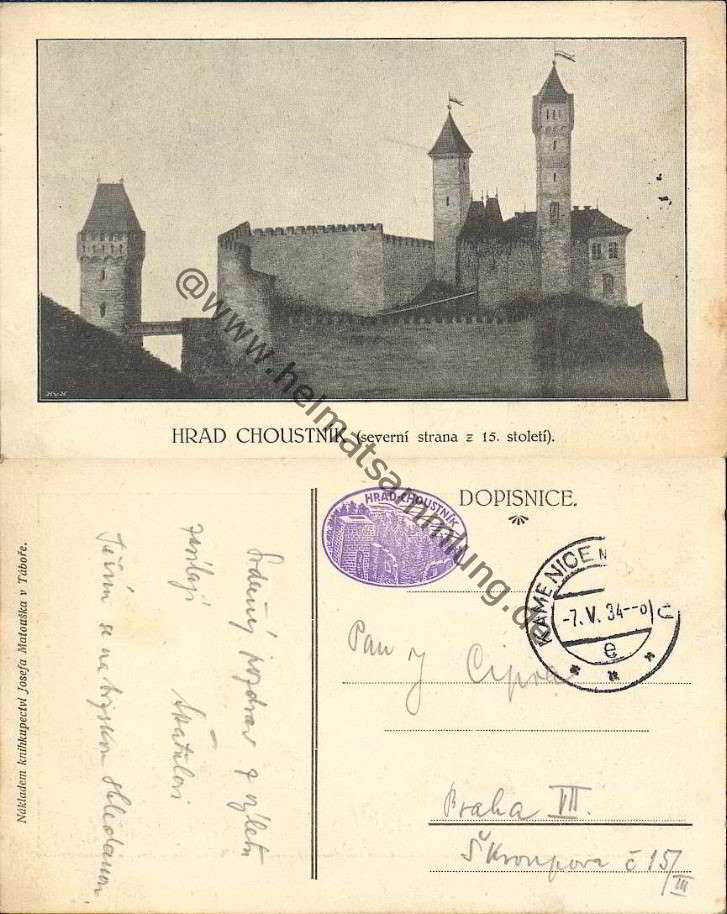 HRAD CHOUSTNÍK (severní strana z 15. století).
@www.heimatsammlung.de
Nákladem knihkupectví Josefa Matouška v Táboře.
Srdečný pozdrav z výletu
zasílají
Těším se na brzkou shledanou
HRAD CHOUSTNÍK
DOPISNICE.
KAMENICE N
-7.V.34--0
Č
e
Pan J Cipra
Praha VII.
Škroupova č 15/III